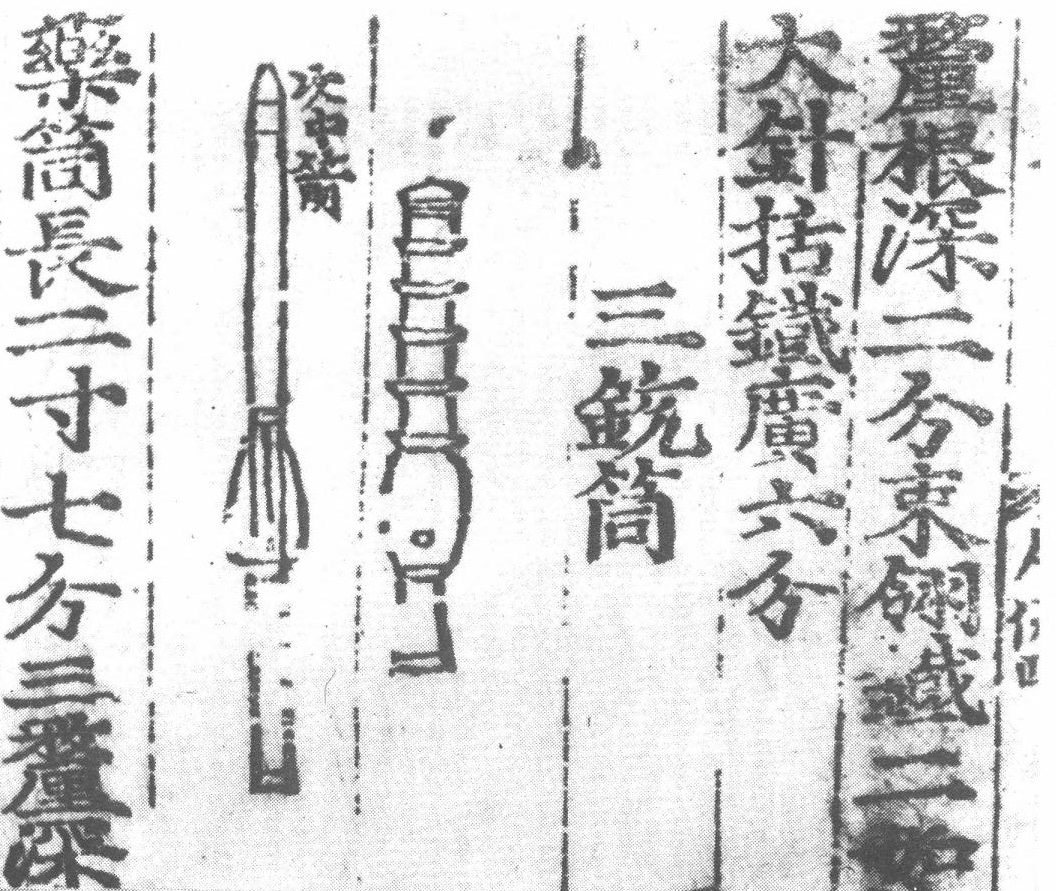 釐根深二分束翎鐵二
大針括鐵廣六分
三銃筒
次中箭
藥筒長二寸七分三釐深